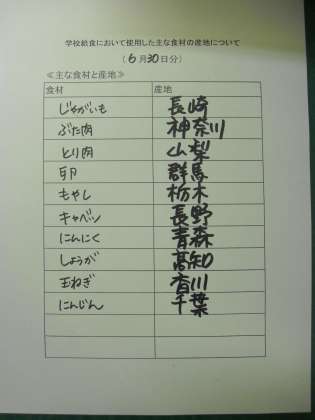 学校給食において使用した主な食材の産地について
(6月30日分)
≪主な食材と産地≫
食材 産地
じゃがいも 長崎
ぶた肉 神奈川
とり肉 山梨
卵 群馬
もやし 栃木
キャベツ 長野
にんにく 青森
しょうが 高知
玉ねぎ 香川
にんじん 千葉